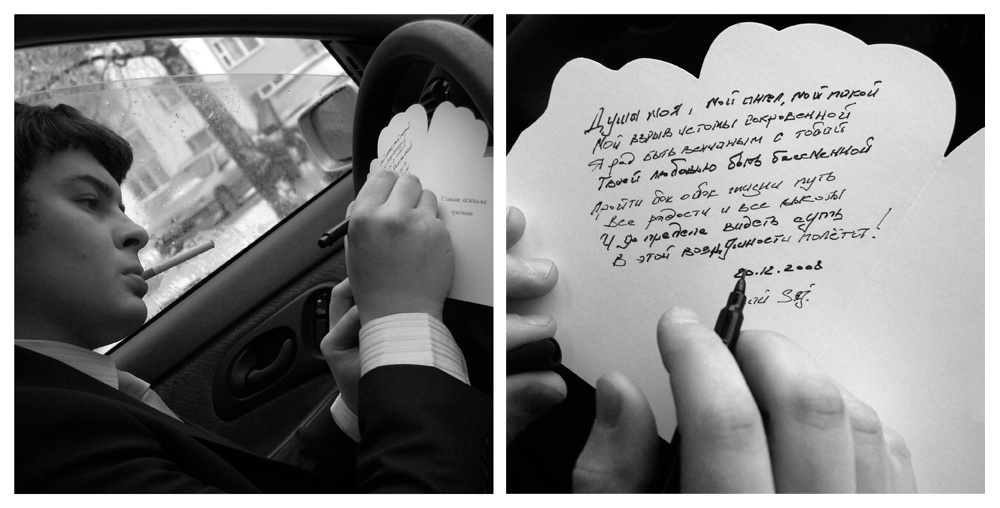 С самыми нежными
чувствами
Душа моя, мой ангел, мой покой
Мой взрыв истомы сокровенной
Я рад быть венчаным с тобой
Твоей любовью быть бессменной
Пройти бок о бок жизни путь
Все радости и все высоты
И до предела видеть суть
В этой воздушности полёта!
20.12.2008